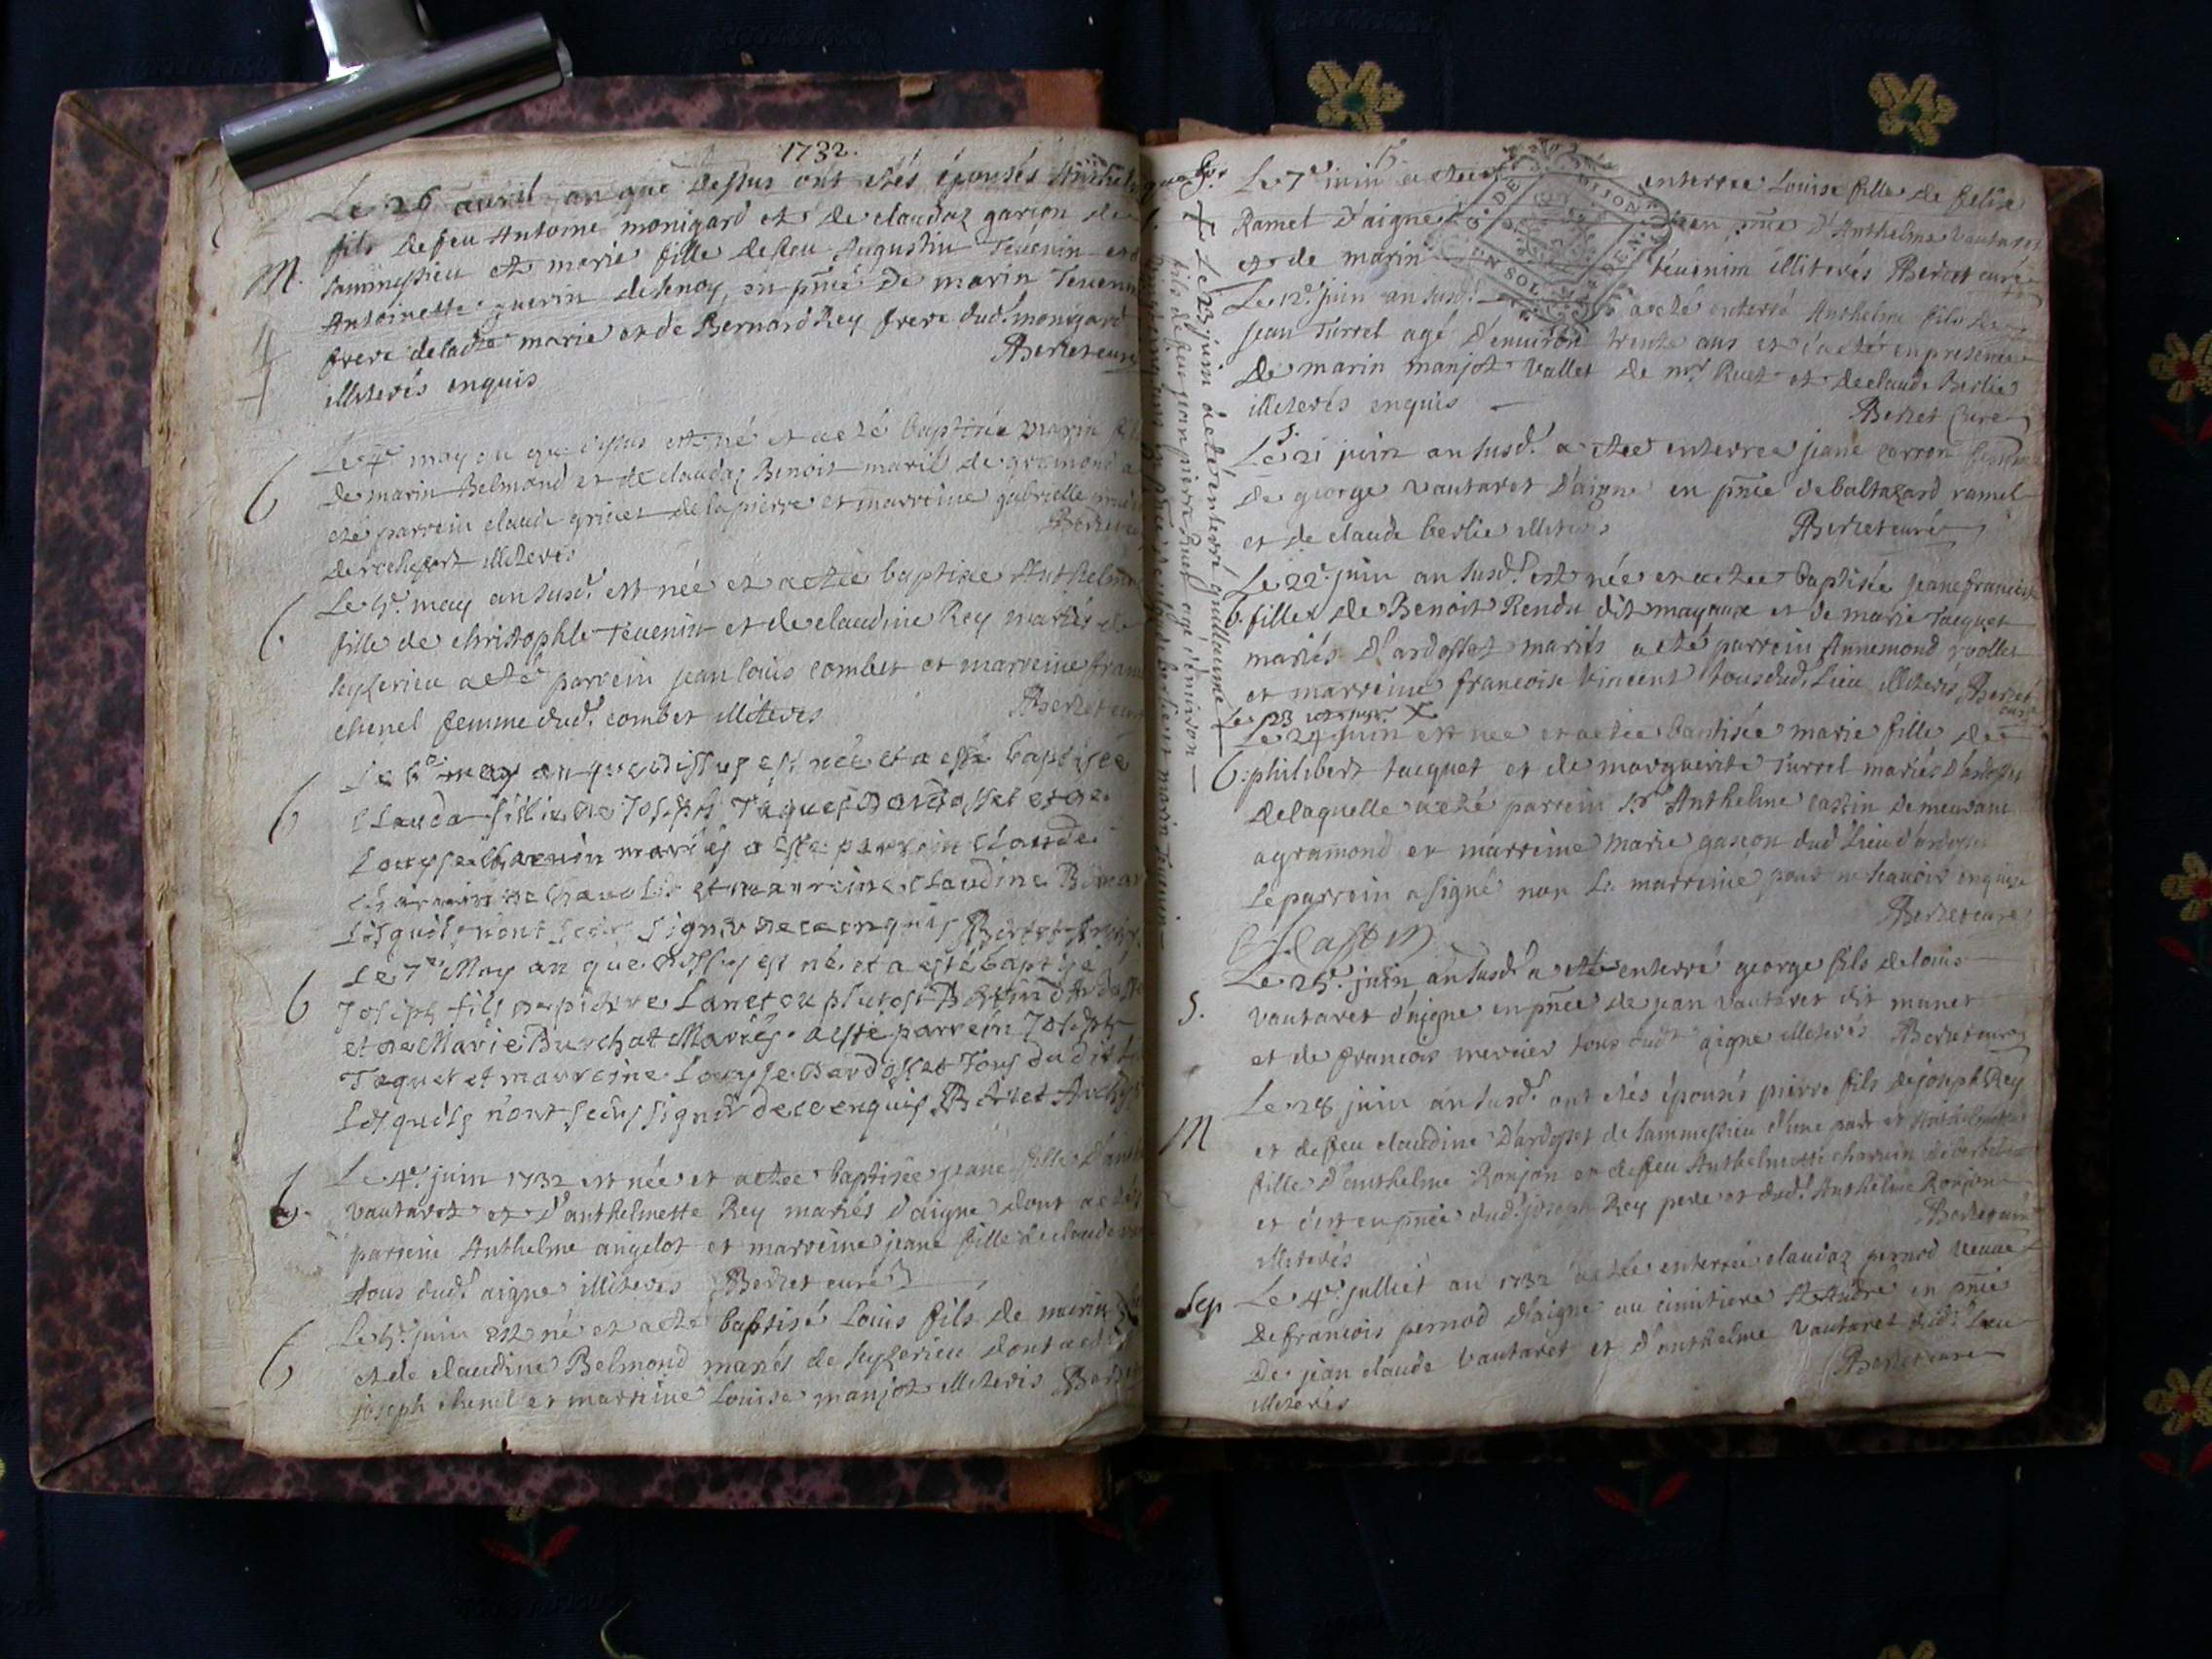 1732.
Le 26 avril an que dessus ont etés épousés Anthel
fils de feu Antoine monigard et de claudaz garçon de
M. Sammessieu et marie fille de feu Augustin Tevenin et d
Antoinette guerin de henoy, en pnce de marin Tevenin
frere de ladte marie et de Bernard Rey frere dud. monigard
illiterés enquis ABerzet curé
Le 4e may an que dessus est né et a eté baptisée marin fi
b de marin Belmond et de claudaz Benoit mariés de gramond a
eté parrein claude grinet de la pierre et marreine gabrielle
de rochefort illiterés ABerzet
Le 5e may an susd. est née et a etée baptisée Anthelm
b. fille de christophle Tevenin et de claudine Rey mariés de
Seyzerieu a eté parrein jean louis combet et marreine fran
chenel femme dud. combet illiterés ABerzet cur
Le 6e may an que dissus est née et a esté baptisée
b Clauda fillie de Joseph Taquet Dardosset et de
Louyse Charvin mariés a esté parrein Claude
Charvin de et marreine Claudine
Lesquels n'ont sceus signer de ce enquis
Le 7e May an que dissus est né et a esté baptisé
b Joseph fils de pierre Lanet ou plutost d'Ardosset
et de Marie Burchat Mariés a esté parrein Joseph
Taquet et marreine Louyse Dardosset Tous dudit
Lesquels n'ont sceus signer de ce enquis
Le 4e juin 1732 est née et a etée baptisée jeane fille d'anth
b. vautaret et d'anthelmette Rey mariés d'aigne dont a etés
parrein Anthelme angelot et marreine jeane fille de claude
tous dud. aigne illiterés ABerzet curé
Le 5e juin est né et a eté baptisé Louis fils de marin
b et de claudine Belmond mariés de Seyzerieu dont a eté
joseph chenel et marreine Louise manjot illiterés ABerzet
Le 7e juin a etée enterrée Louise fille de felix
Ramel d'aigne en pnce d'Anthelme vautaret
et de marin tévenin illiterés ABerzet curé
Le 12e juin an susd. a eté enterré Anthelme fils de
jean Turrel agé d'environ trente ans et c'a eté en presence
de marin manjot vallet de mr Ruet et de claude Berlie
illiterés enquis ABerzet Curé
Le 21 juin an susd. a etée enterrée jeane carron femme
de george vautaret d'aigne en pnce de baltazard ramel
et de claude berlie illiterés ABerzet curé
Le 22e juin an susd. est née et a etée baptisée jeane francoise
b. fille de Benoit Rendu dit mayaux et de marie Taquet
mariés d'ardosset mariés a eté parrein Annemond rvollet
et marreine francoise vincent tous dud. Lieu illiterés ABerzet curé
Le 23
Le 24 juin est née et a etée baptisée marie fille de
b. philibert taquet et de marguerite Turrel mariés d'ardosset
de laquelle a eté parrein sr Anthelme castin demeurant
a gramond et marreine marie gascon dud Lieu d'ardosset
Le parrein a signé non la marreine pour ne scavoir enquise
ABerzet curé
Castin
Le 25e juin an susd. a eté enterré george fils de louis
S. vautaret d'aigne en pnce de jean vautaret dit munet
et de francois mercier tous dudt aigne illiterés ABerzet curé
Le 28 juin an susd. ont etés épousés pierre fils de joseph Rey
M et de feu claudine D'ardosset de Sammessieu d'une part et Anthelmette
fille d'anthelme Ronjon et de feu Anthelmette charvin
et c'est en pnce dud. joseph Rey pere et dud. Anthelme Ronjon
illiterés ABerzet curé
Sep Le 4e julliet an 1732 a etée enterrée claudaz pernod veuve
de francois pernod d'aigne au cimitiere St André en pnce
de jean claude vautaret et d'anthelme vautaret dud. Lieu
illiterés ABerzet curé
Le 23 juin a eté enterré guillaume
fils de feu jean pierre Ruet agé d'environ